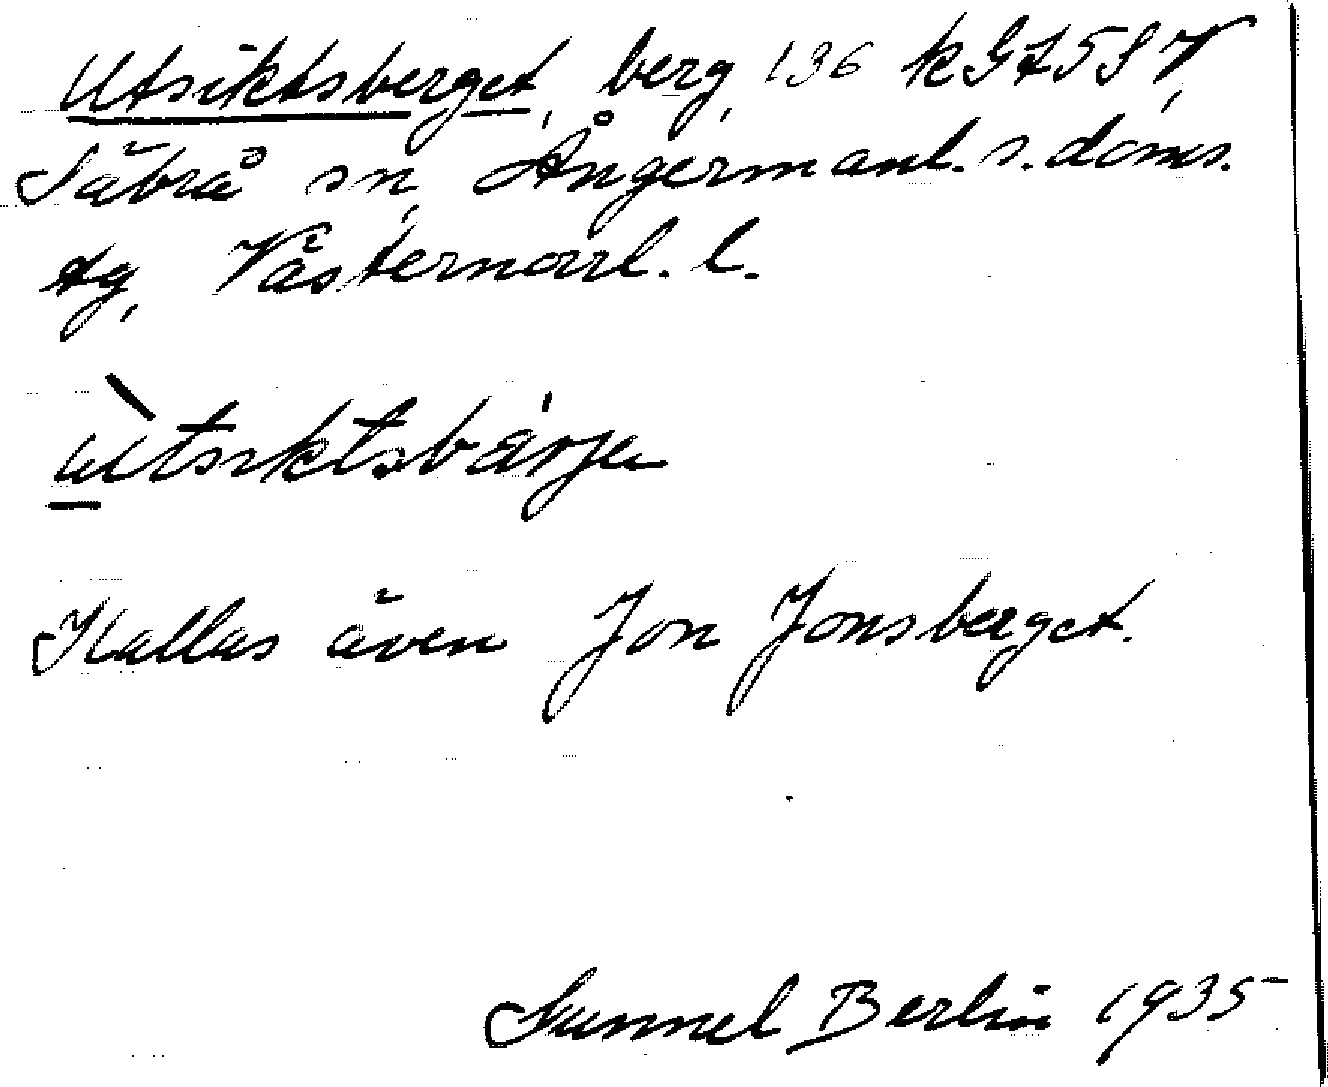 Utsiktsberget, berg, 136 k GA5SV,
Säbrå sn, Ångermanl. s. doms.
tg, Västernorrl. l.
ùtsiktsbärje
Kallas även Jon Jonsberget.
Berlin 1935